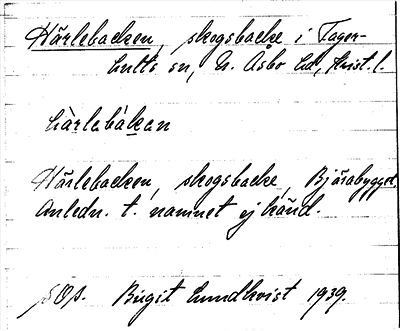 Härlebacken, skogsbacke i Fager-
hults sn, N. Åsbo hd, Krist. l.
hàrlabàkan
Härlebacken, skogsbacke, Bjärabygget.
Anledn. t. namnet ej känd.
Birgit Lundkvist 1939.